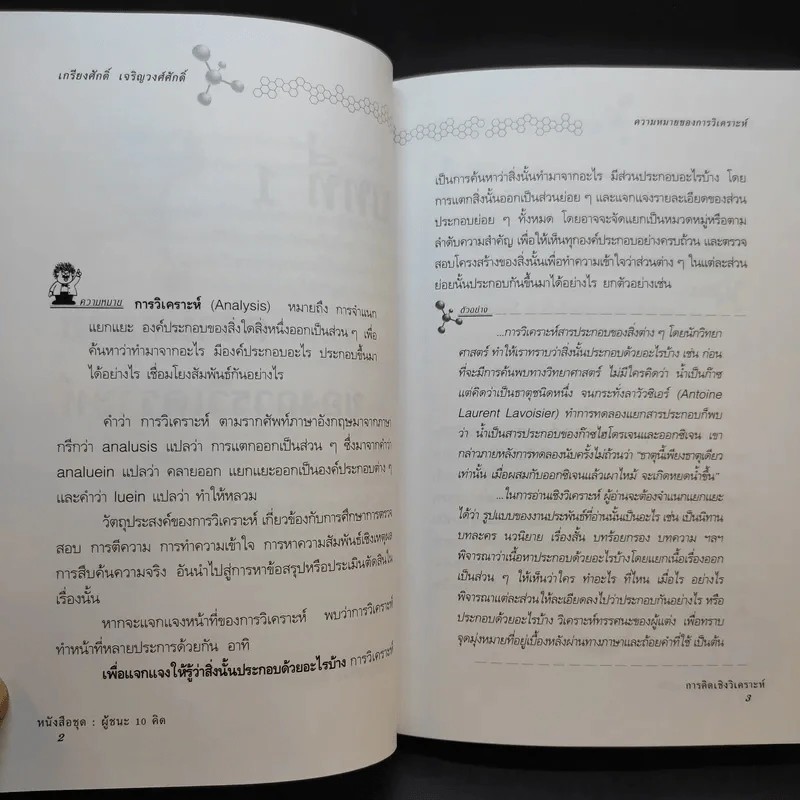 เกรียงศักดิ์ เจริญวงศ์ศักดิ์
ความหมาย การวิเคราะห์ (Analysis) หมายถึง การจำแนก
แยกแยะ องค์ประกอบของสิ่งใดสิ่งหนึ่งออกเป็นส่วน ๆ เพื่อ
ค้นหาว่าทำมาจากอะไร มีองค์ประกอบอะไร ประกอบขึ้นมา
ได้อย่างไร เชื่อมโยงสัมพันธ์กันอย่างไร
คำว่า การวิเคราะห์ ตามรากศัพท์ภาษาอังกฤษมาจากภาษา
กรีกว่า analusis แปลว่า การแตกออกเป็นส่วน ๆ ซึ่งมาจากคำว่า
analuein แปลว่า คลายออก แยกแยะออกเป็นองค์ประกอบต่าง ๆ
และคำว่า luein แปลว่า ทำให้หลวม
วัตถุประสงค์ของการวิเคราะห์ เกี่ยวข้องกับการศึกษาการตรวจ
สอบ การตีความ การทำความเข้าใจ การหาความสัมพันธ์เชิงเหตุผล
การสืบค้นความจริง อันนำไปสู่การหาข้อสรุปหรือประเมินตัดสินใน
เรื่องนั้น
หากจะแจกแจงหน้าที่ของการวิเคราะห์ พบว่าการวิเคราะห์
ทำหน้าที่หลายประการด้วยกัน อาทิ
เพื่อแจกแจงให้รู้ว่าสิ่งนั้นประกอบด้วยอะไรบ้าง การวิเคราะห์
หนังสือชุด : ผู้ชนะ 10 คิด
2
ความหมายของการวิเคราะห์
เป็นการค้นหาว่าสิ่งนั้นทำมาจากอะไร มีส่วนประกอบอะไรบ้าง โดย
การแตกสิ่งนั้นออกเป็นส่วนย่อย ๆ และแจกแจงรายละเอียดของส่วน
ประกอบย่อย ๆ ทั้งหมด โดยอาจจะจัดแยกเป็นหมวดหมู่หรือตาม
ลำดับความสำคัญ เพื่อให้เห็นทุกองค์ประกอบอย่างครบถ้วน และตรวจ
สอบโครงสร้างของสิ่งนั้นเพื่อทำความเข้าใจว่าส่วนต่าง ๆ ในแต่ละส่วน
ย่อยนั้นประกอบกันขึ้นมาได้อย่างไร ยกตัวอย่างเช่น
ตัวอย่าง
...การวิเคราะห์สารประกอบของสิ่งต่าง ๆ โดยนักวิทยา
ศาสตร์ ทำให้เราทราบว่าสิ่งนั้นประกอบด้วยอะไรบ้าง เช่น ก่อน
ที่จะมีการค้นพบทางวิทยาศาสตร์ ไม่มีใครคิดว่า น้ำเป็นก๊าซ
แต่คิดว่าเป็นธาตุชนิดหนึ่ง จนกระทั่งลาวัวซิเอร์ (Antoine
Laurent Lavoisier) ทำการทดลองแยกสารประกอบก็พบ
ว่า น้ำเป็นสารประกอบของก๊าซไฮโดรเจนและออกซิเจน เขา
กล่าวภายหลังการทดลองนับครั้งไม่ถ้วนว่า “ธาตุนี้เพียงธาตุเดียว
เท่านั้น เมื่อผสมกับออกซิเจนแล้วเผาไหม้ จะเกิดหยดน้ำขึ้น”
...ในการอ่านเชิงวิเคราะห์ ผู้อ่านจะต้องจำแนกแยกแยะ
ได้ว่า รูปแบบของงานประพันธ์ที่อ่านนั้นเป็นอะไร เช่น เป็นนิทาน
บทละคร นวนิยาย เรื่องสั้น บทร้อยกรอง บทความ ฯลฯ
พิจารณาว่าเนื้อหาประกอบด้วยอะไรบ้างโดยแยกเนื้อเรื่องออก
เป็นส่วน ๆ ให้เห็นว่าใคร ทำอะไร ที่ไหน เมื่อไร อย่างไร
พิจารณาแต่ละส่วนให้ละเอียดลงไปว่าประกอบกันอย่างไร หรือ
ประกอบด้วยอะไรบ้าง วิเคราะห์ทรรศนะของผู้แต่ง เพื่อทราบ
จุดมุ่งหมายที่อยู่เบื้องหลังผ่านทางภาษาและถ้อยคำที่ใช้ เป็นต้น
การคิดเชิงวิเคราะห์
3